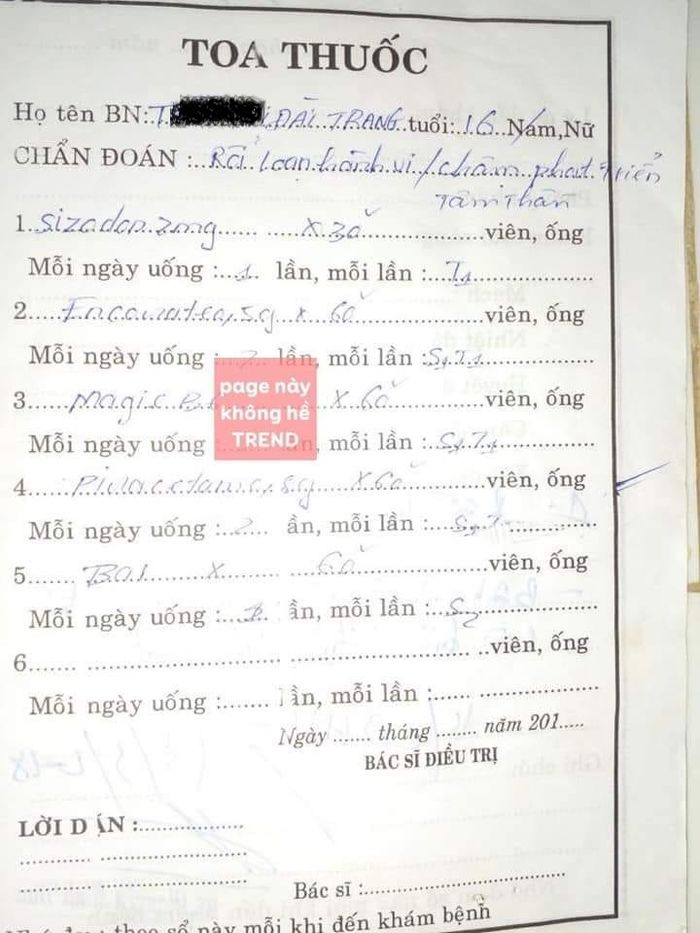 TOA THUỐC
Họ tên BN: ĐÀI TRANG tuổi: 16 Nam, Nữ
CHẨN ĐOÁN : Rối loạn hành vi / chậm phát triển
Tâm thần
1. Sizodon 2mg x 30 viên, ống
Mỗi ngày uống : 1 lần, mỗi lần : T1
2. x 60 viên, ống
Mỗi ngày uống : 2 lần, mỗi lần : S1T1
3. Magic B x 60 viên, ống
Mỗi ngày uống : ần, mỗi lần : S1T1
4. x 60 viên, ống
Mỗi ngày uống : 2 ần, mỗi lần :
5. x 60 viên, ống
Mỗi ngày uống : ần, mỗi lần : S2
6. viên, ống
Mỗi ngày uống : lần, mỗi lần :
Ngày ...... tháng ....... năm 201.....
BÁC SĨ ĐIỀU TRỊ
LỜI DẶN :
Bác sĩ :
theo sổ này mỗi khi đến khám bệnh
page này
không hề
TREND